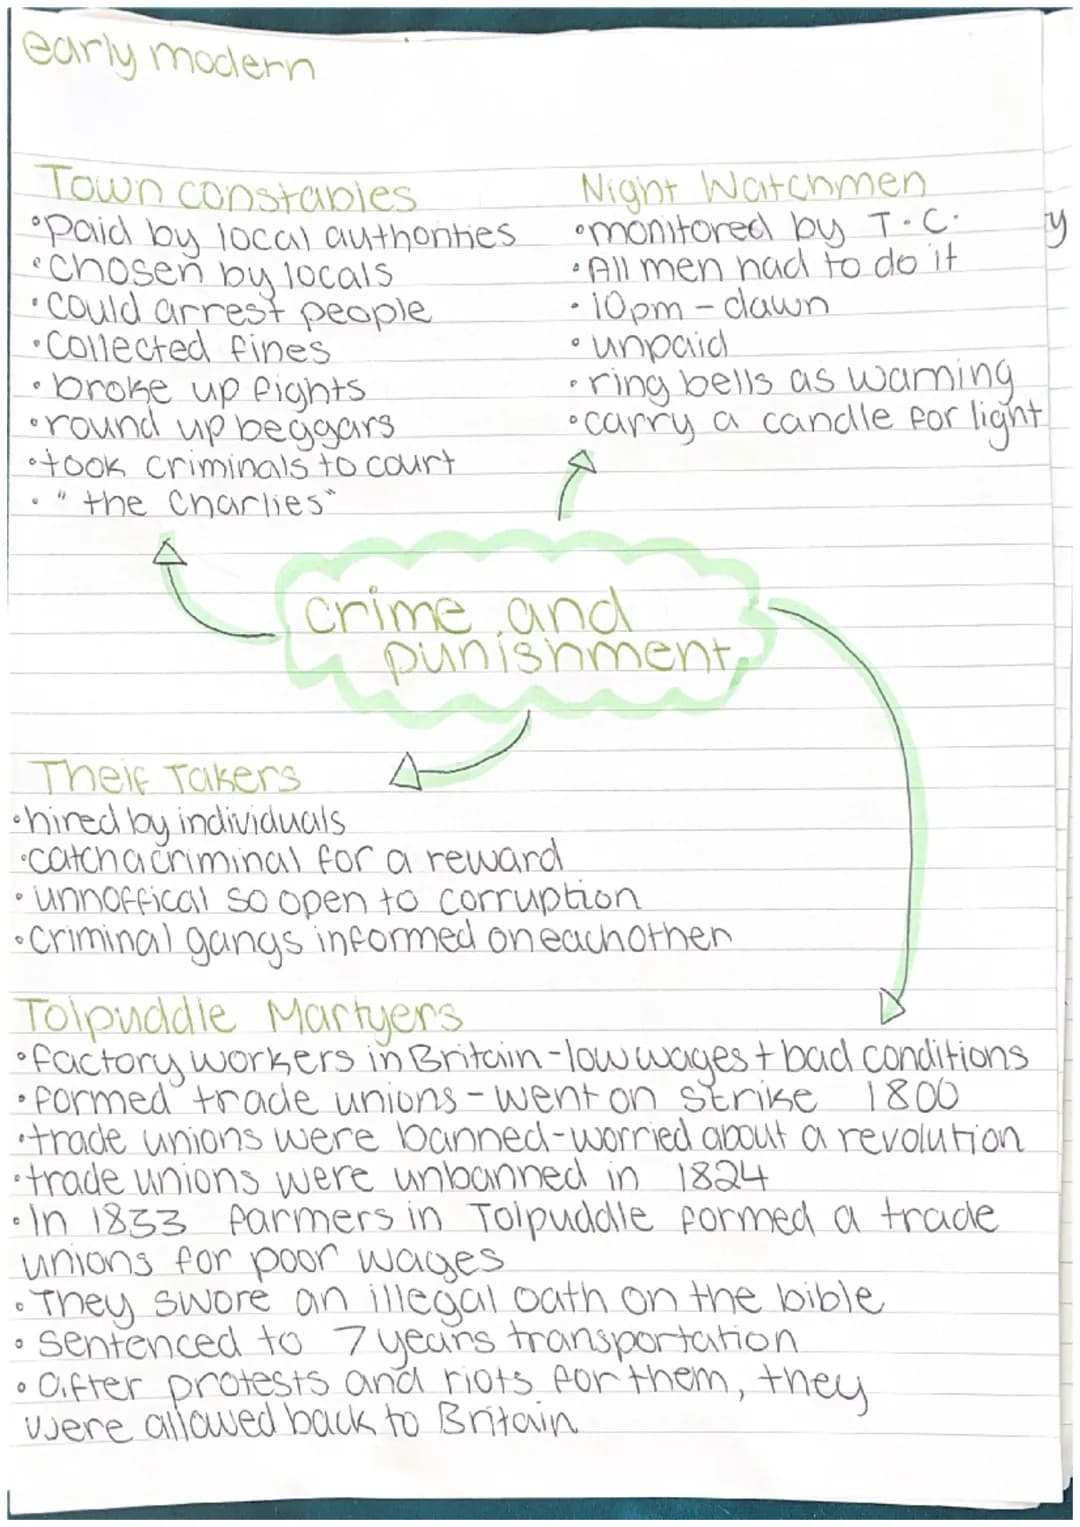 early modern
Town constables
•paid by local authorities
•chosen by locals
•could arrest people
•collected fines
•broke up fights
•round up beggars
•took criminals to court
•"the Charlies"
Night Watchmen
•monitored by T.C.
•All men had to do it
•10pm - dawn
•unpaid
•ring bells as warning
•carry a candle for light
y
crime and
punishment
Theif Takers
•hired by individuals
•catch a criminal for a reward
•unnoffical so open to corruption
•criminal gangs informed on eachother
Tolpuddle Martyers
•factory workers in Britain - low wages + bad conditions
•formed trade unions - went on strike 1800
•trade unions were banned - worried about a revolution
•trade unions were unbanned in 1824
•In 1833 farmers in Tolpuddle formed a trade
unions for poor wages
•They swore an illegal oath on the bible
•sentenced to 7 years transportation
•after protests and riots for them, they
were allowed back to Britain